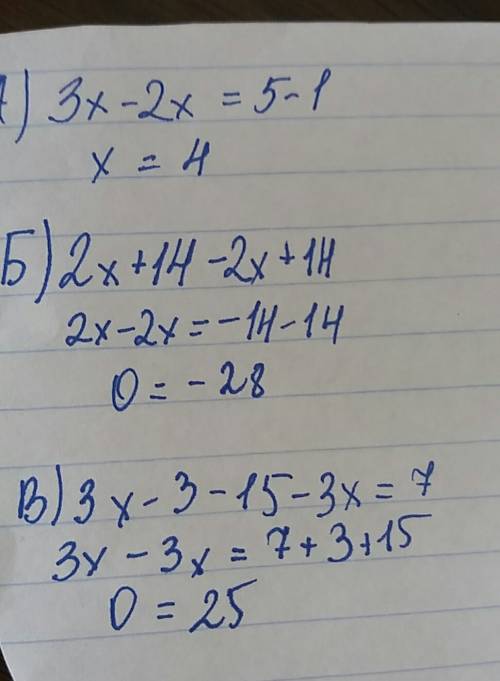 А) 3x - 2x = 5 - 1
x = 4
Б) 2x + 14 - 2x + 14
2x - 2x = - 14 - 14
0 = - 28
В) 3x - 3 - 15 - 3x = 7
3x - 3x = 7 + 3 + 15
0 = 25